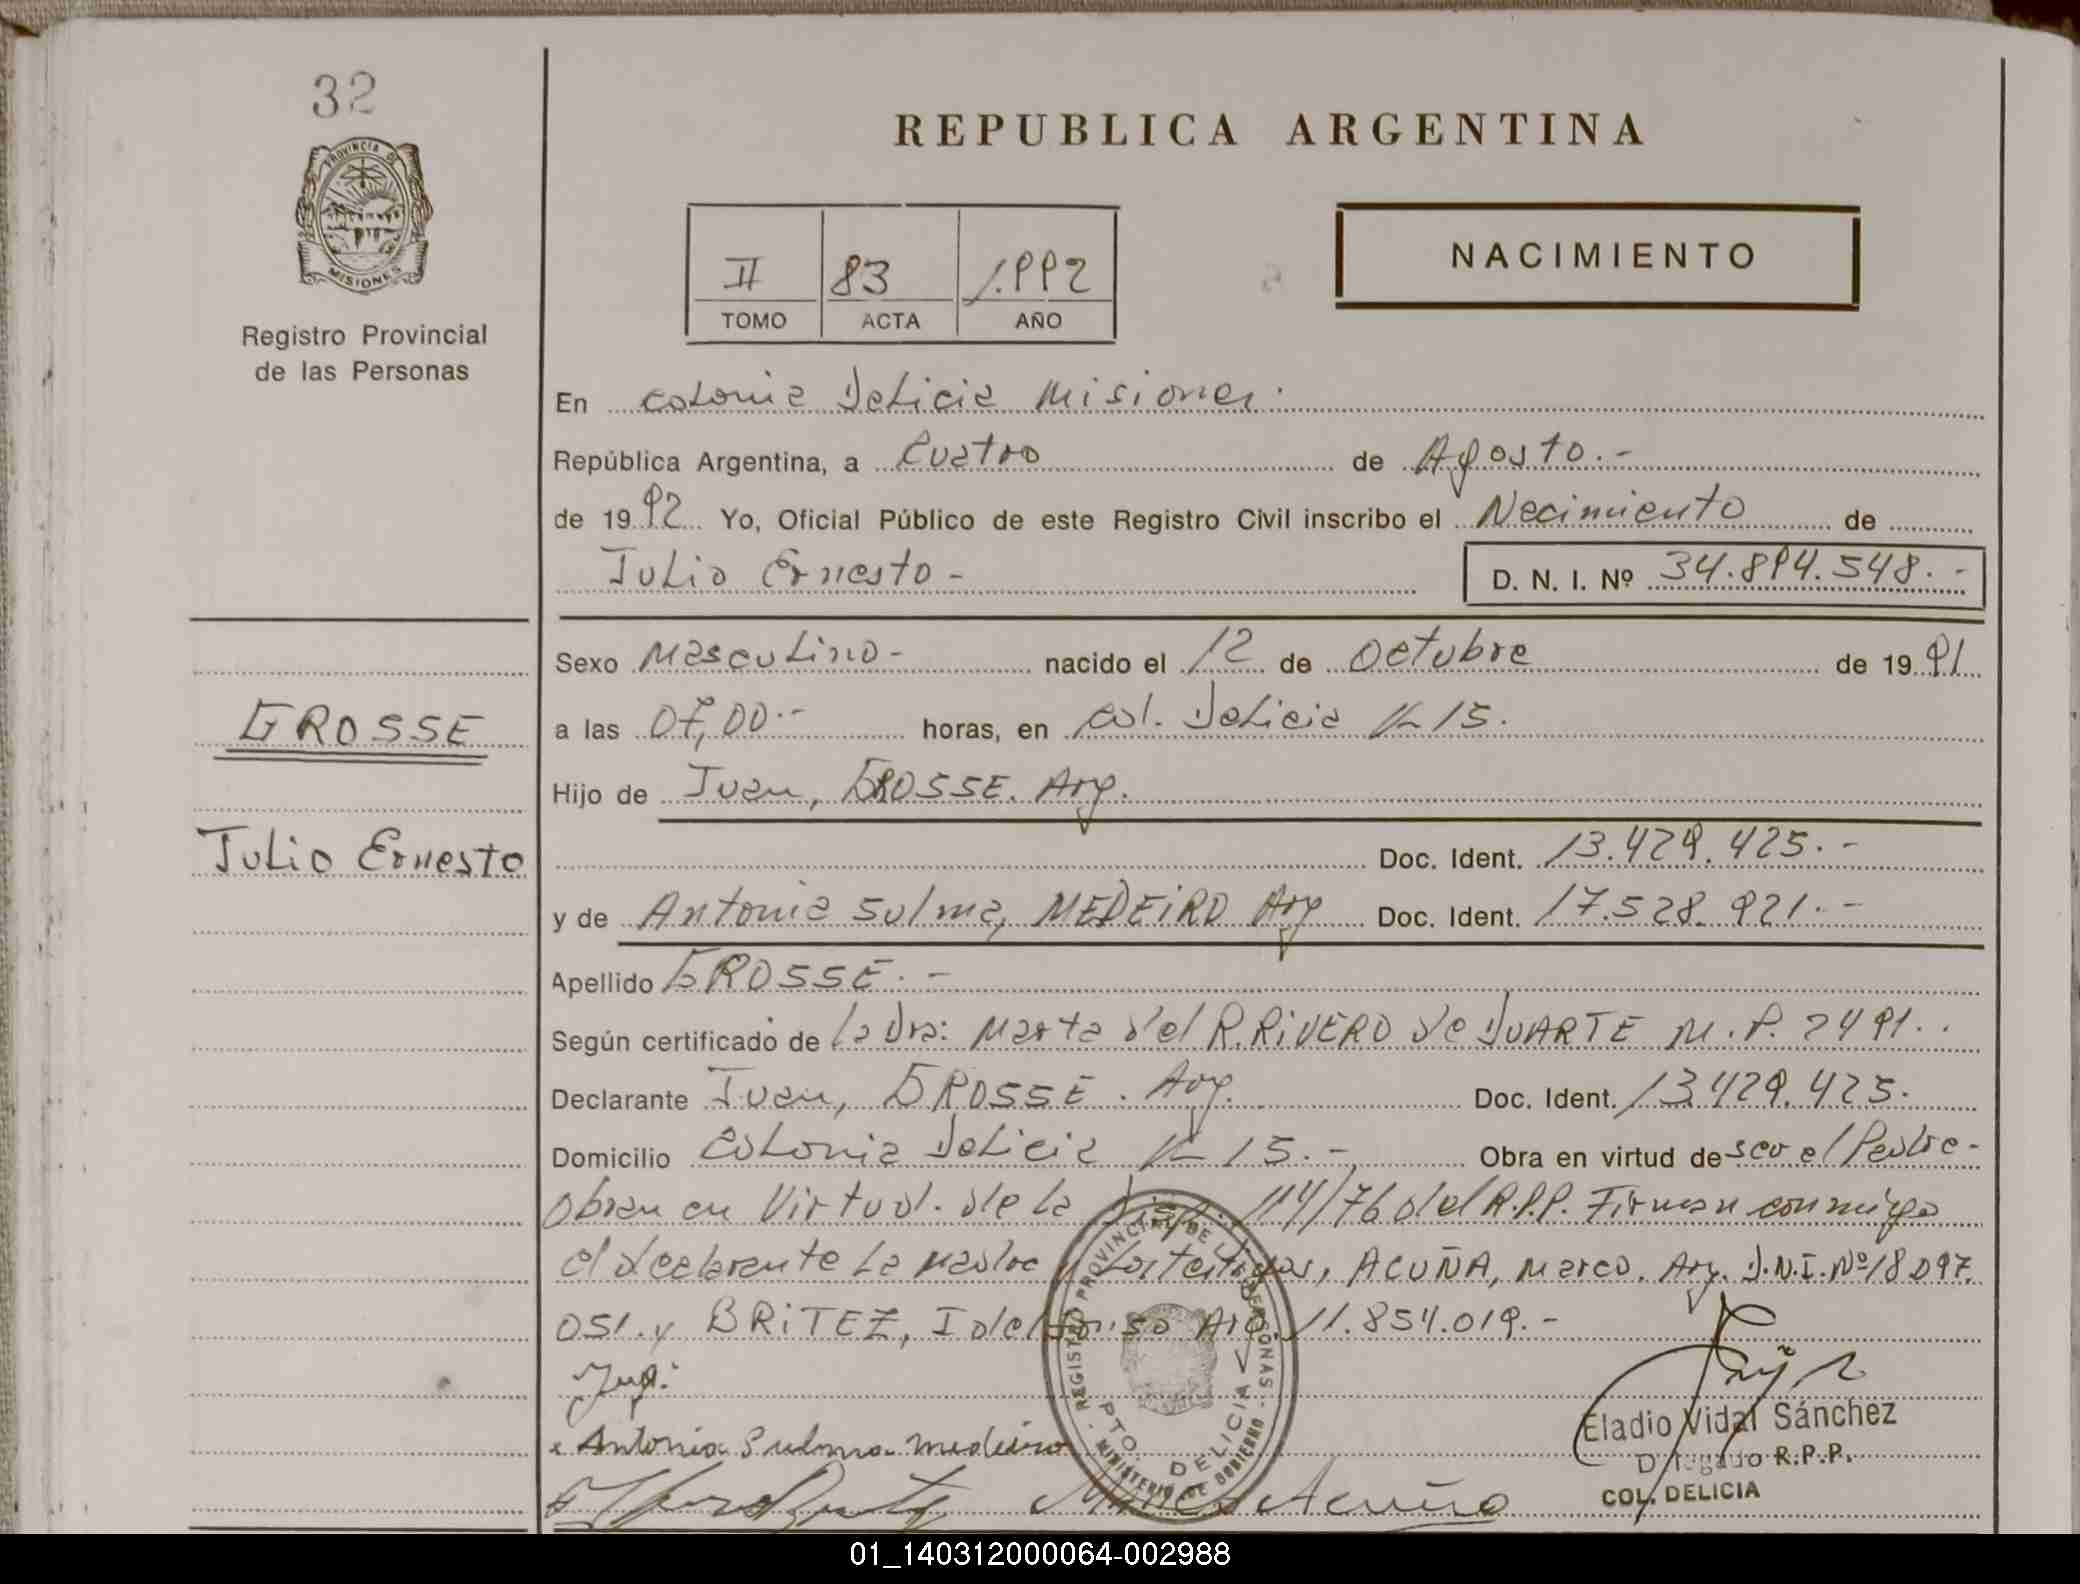 32
PROVINCIA DE
MISIONES
Registro Provincial
de las Personas
REPUBLICA ARGENTINA
NACIMIENTO
II 83 1.992
TOMO ACTA AÑO
En Colonia Delicia Misiones.
República Argentina, a Cuatro de Agosto.-
de 1992 Yo, Oficial Público de este Registro Civil inscribo el Nacimiento de
Julio Ernesto - D. N. I. Nº 34.894.548.-
Sexo Masculino- nacido el 12 de Octubre de 1991
GROSSE
a las 07,00.- horas, en Col. Delicia K 15.
Hijo de Juan, GROSSE. Arg.
Julio Ernesto
Doc. Ident. 13.429.425.-
y de Antonia Sulma, MEDEIRO Arg Doc. Ident. 17.528.921.-
Apellido GROSSE.-
Según certificado de la Dra: Marta del R. RIVERO de DUARTE M.P. 2491..
Declarante Juan, GROSSE. Arg. Doc. Ident. 13.429.425.
Domicilio Colonia Delicia K 15.- Obra en virtud de ser el Padre-
obran en Virtud. de la 114/76 del R.P.P. Firman conmigo
el declarante La Madre y Los testigos, ACUÑA, Marco. Arg. D.N.I. Nº 18.097.
051.y BRITEZ, Idelfonso Arg. 11.854.019.-
Antonia Sulma medeiro
Acuña
REGISTRO PROVINCIAL DE LAS PERSONAS
PTO. DELICIA
MINISTERIO DE GOBIERNO
Eladio Vidal Sánchez
Delegado R.P.P.
COL. DELICIA
01_140312000064-002988